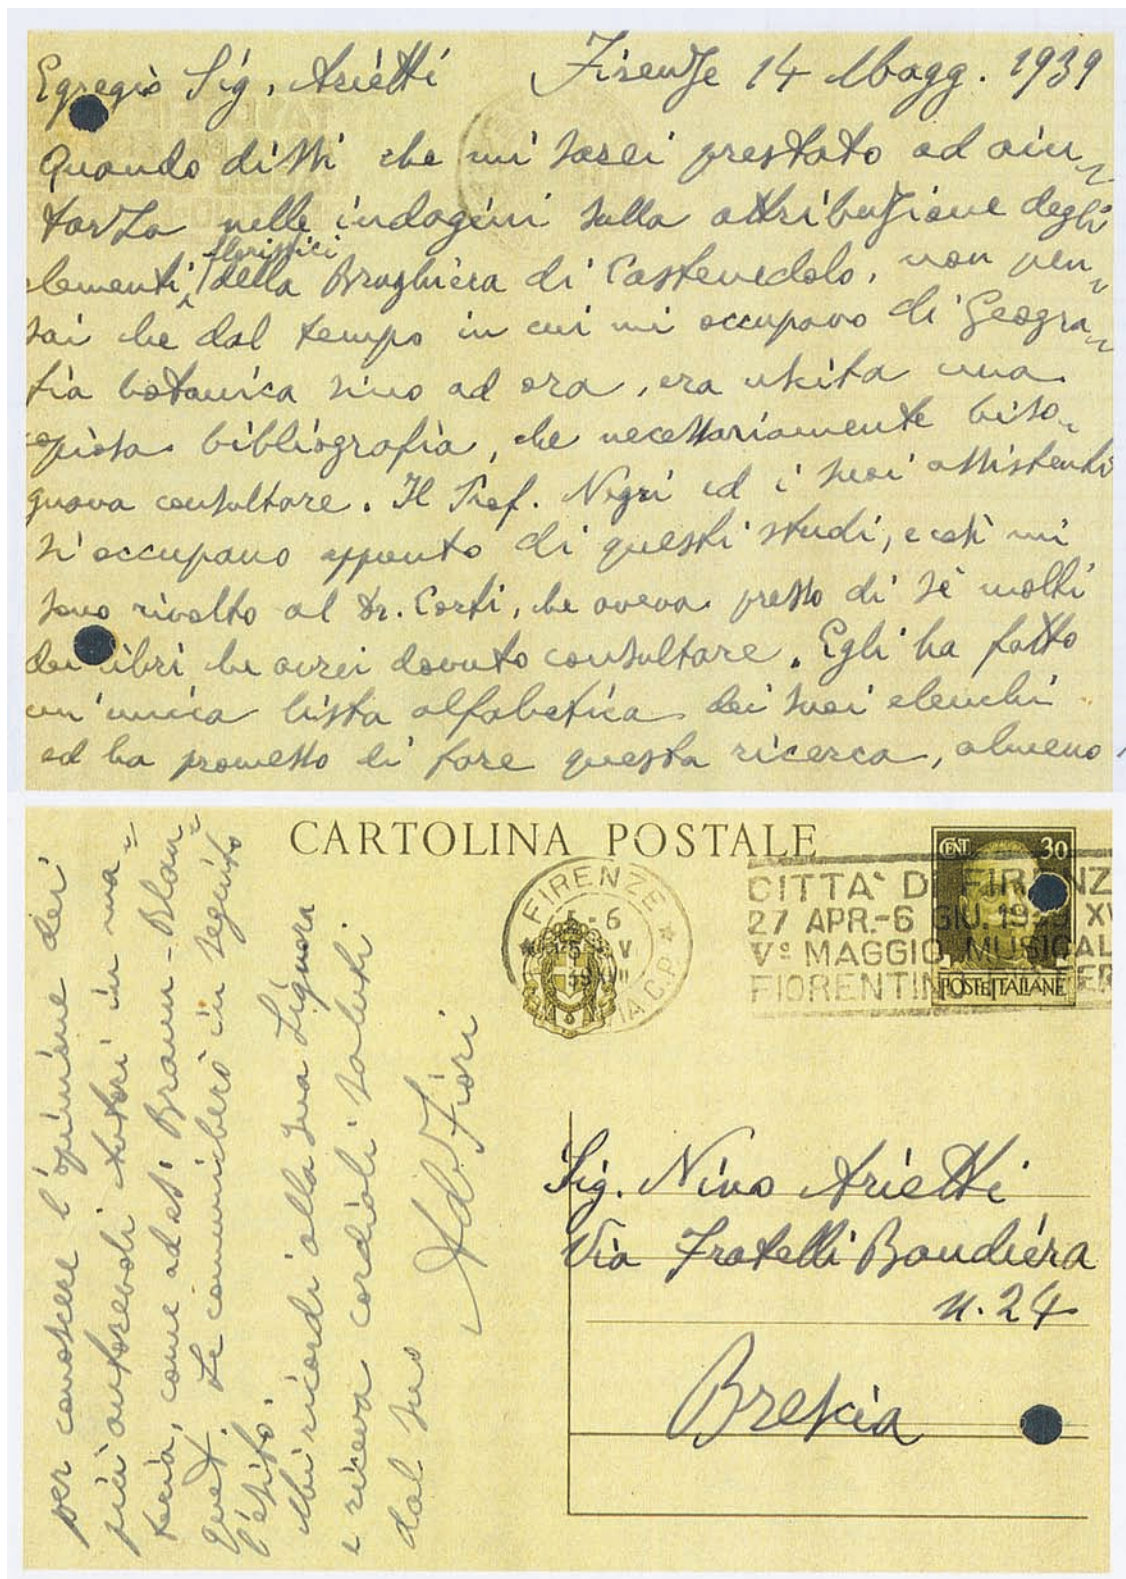 Egregio Sig. Arietti Firenze 14 Magg. 1939
Quando dissi che mi sarei prestato ad aiu-
tarLa nelle indagini sulla attribuzione degli
elementi floristici della Brughiera di Castenedolo, non pen-
sai che dal tempo in cui mi occupavo di Geogra-
fia botanica sino ad ora, era uscita una
copiosa bibliografia, che necessariamente biso-
gnava consultare. Il Prof. Negri ed i suoi assistenti
si occupano appunto di questi studi, e così mi
sono rivolto al Dr. Corti, che aveva presso di sè molti
dei libri che avrei dovuto consultare. Egli ha fatto
un'unica lista alfabetica dei suoi elenchi
ed ha promesso di fare questa ricerca, almeno
per conoscere l'opinione dei
più autorevoli Autori in ma-
teria, come ad es. Braun-Blan-
quet. Le comunicherò in seguito
l'esito.
Mi ricordi alla Sua Signora
e riceva cordiali saluti
dal suo
Ad. Fiori
CARTOLINA POSTALE
CENT. 30
POSTE ITALIANE
FIRENZE
5-6
15 V
CITTA' DI FIRENZ
27 APR.-6 GIU. 1939 XV
V° MAGGIO MUSICAL
FIORENTINO
Sig. Nino Arietti
Via Fratelli Bandiera
n. 24
Brescia